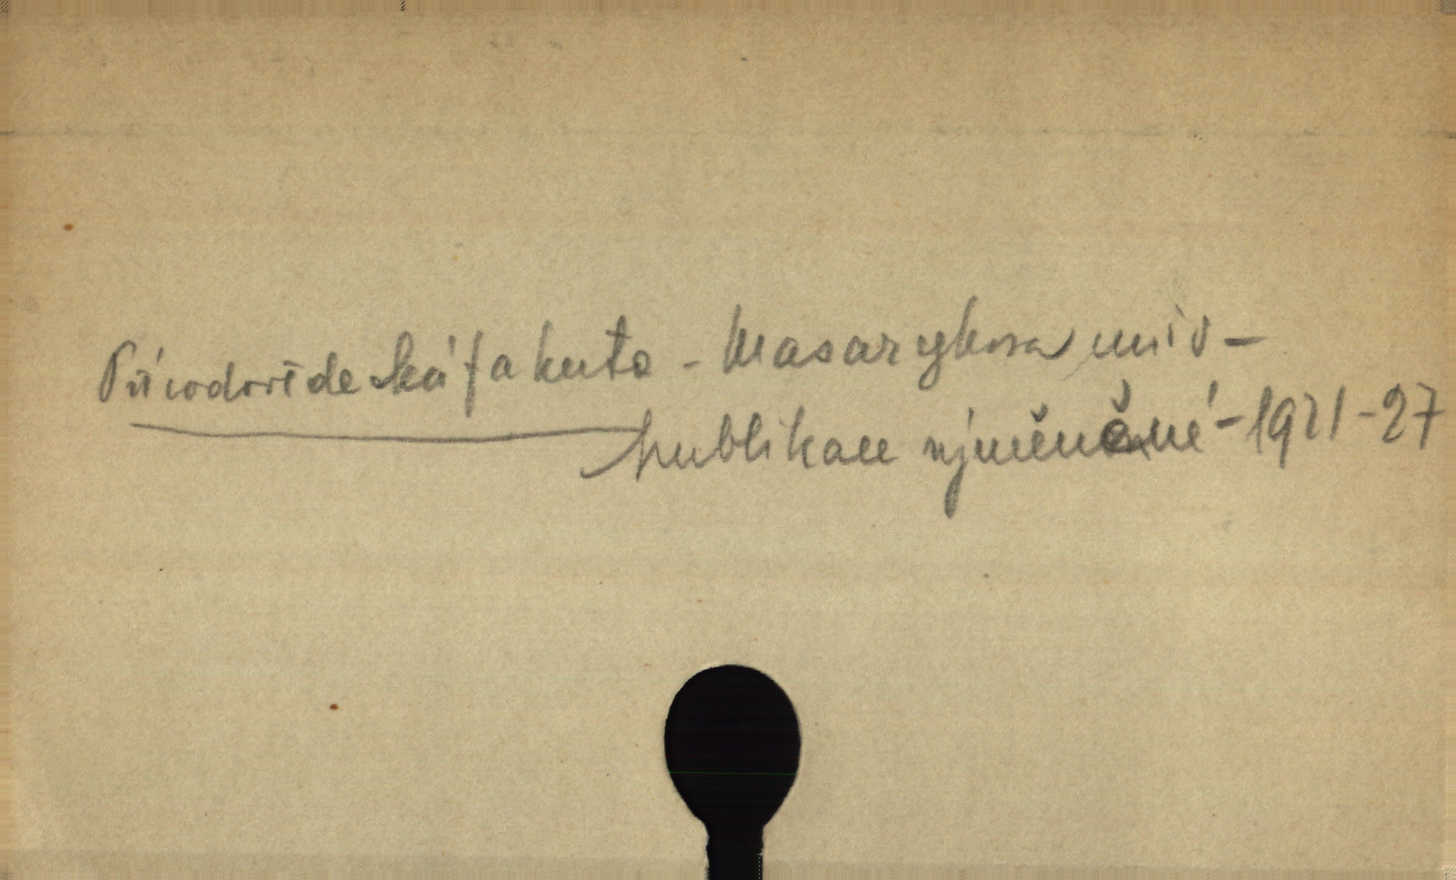 Přírodovědecká fakulta - Masarykova univ -
publikace vyměněné - 1921-27